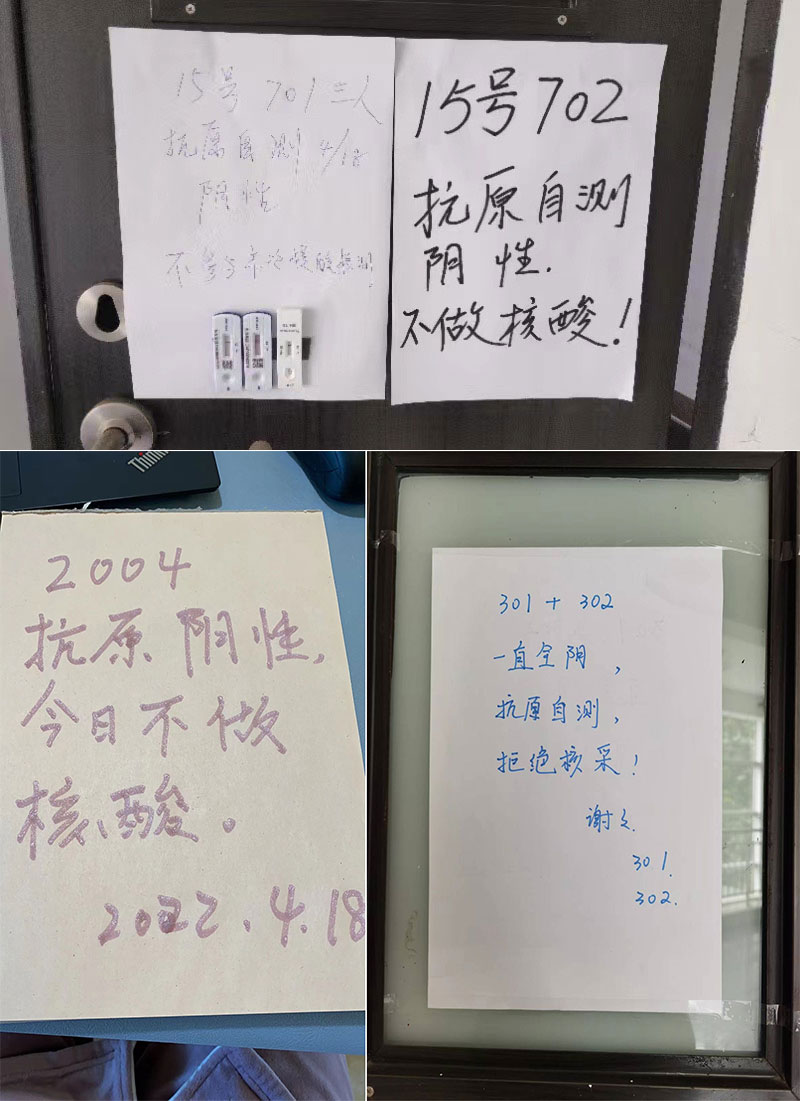 15号 701 三人
抗原自测 4/18
阴性
不参与本次核酸检测。
15号702
抗原自测
阴性.
不做核酸!
Think
2004
抗原阴性,
今日不做
核酸。
2022.4.18
301 + 302
一直全阴,
抗原自测,
拒绝核采!
谢谢.
301.
302.